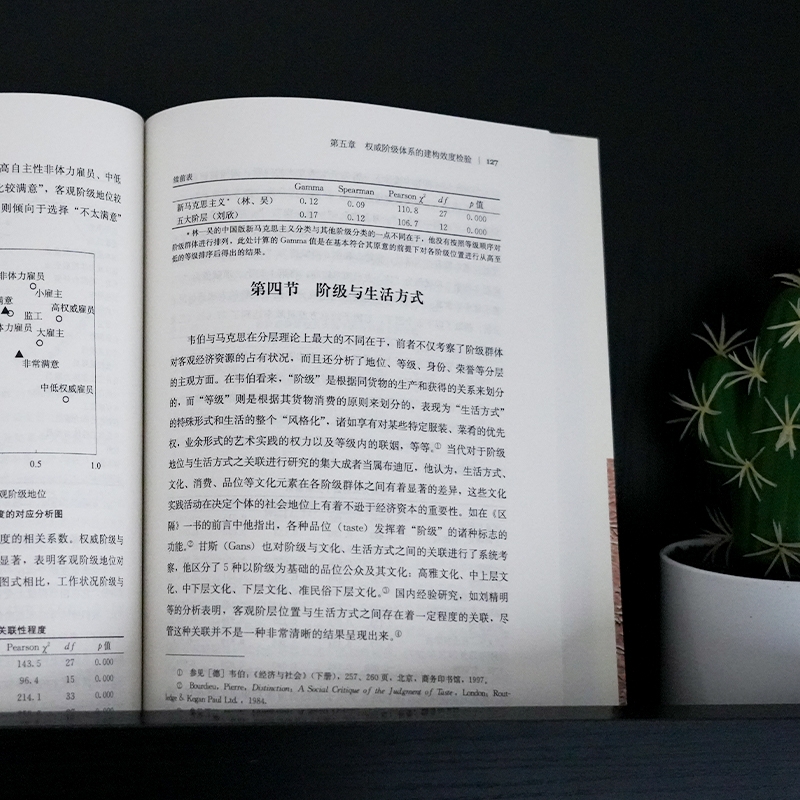 高自主性非体力雇员、中低
比较满意”,客观阶级地位较
则倾向于选择“不太满意”
非体力雇员
小雇主
满意
监工
高权威雇员
体力雇员
大雇主
非常满意
中低权威雇员
0.5
1.0
观阶级地位
度的对应分析图
度的相关系数。权威阶级与
显著,表明客观阶级地位对
图式相比,工作状况阶级与
关联性程度
Pearson χ² df p值
143.5 27 0.000
96.4 15 0.000
214.1 33 0.000
第五章 权威阶级体系的建构效度检验 | 127
续前表
Gamma Spearman Pearson χ² df p值
新马克思主义*(林、吴) 0.12 0.09 110.8 27 0.000
五大阶层(刘欣) 0.17 0.12 106.7 12 0.000
*林—吴的中国版新马克思主义分类与其他阶级分类的一点不同在于,他没有按照等级顺序对
阶级群体进行排列,此处计算的 Gamma 值是在基本符合其原意的前提下对各阶级位置进行从高至
低的等级排序后得出的结果。
第四节 阶级与生活方式
韦伯与马克思在分层理论上最大的不同在于,前者不仅考察了阶级群体
对客观经济资源的占有状况,而且还分析了地位、等级、身份、荣誉等分层
的主观方面。在韦伯看来,“阶级”是根据同货物的生产和获得的关系来划分
的,而“等级”则是根据其货物消费的原则来划分的,表现为“生活方式”
的特殊形式和生活的整个“风格化”,诸如享有对某些特定服装、菜肴的优先
权,业余形式的艺术实践的权力以及等级内的联姻,等等。① 当代对于阶级
地位与生活方式之关联进行研究的集大成者当属布迪厄,他认为,生活方式、
文化、消费、品位等文化元素在各阶级群体之间有着显著的差异,这些文化
实践活动在决定个体的社会地位上有着不逊于经济资本的重要性。如在《区
隔》一书的前言中他指出,各种品位(taste)发挥着“阶级”的诸种标志的
功能。② 甘斯(Gans)也对阶级与文化、生活方式之间的关联进行了系统考
察,他区分了5种以阶级为基础的品位公众及其文化:高雅文化、中上层文
化、中下层文化、下层文化、准民俗下层文化。③ 国内经验研究,如刘精明
等的分析表明,客观阶层位置与生活方式之间存在着一定程度的关联,尽
管这种关联并不是一种非常清晰的结果呈现出来。④
① 参见[德]韦伯:《经济与社会》(下册),257、260页,北京,商务印书馆,1997。
② Bourdieu, Pierre, Distinction: A Social Critique of the Judgment of Taste, London: Rout-
ledge & Kegan Paul Ltd., 1984.